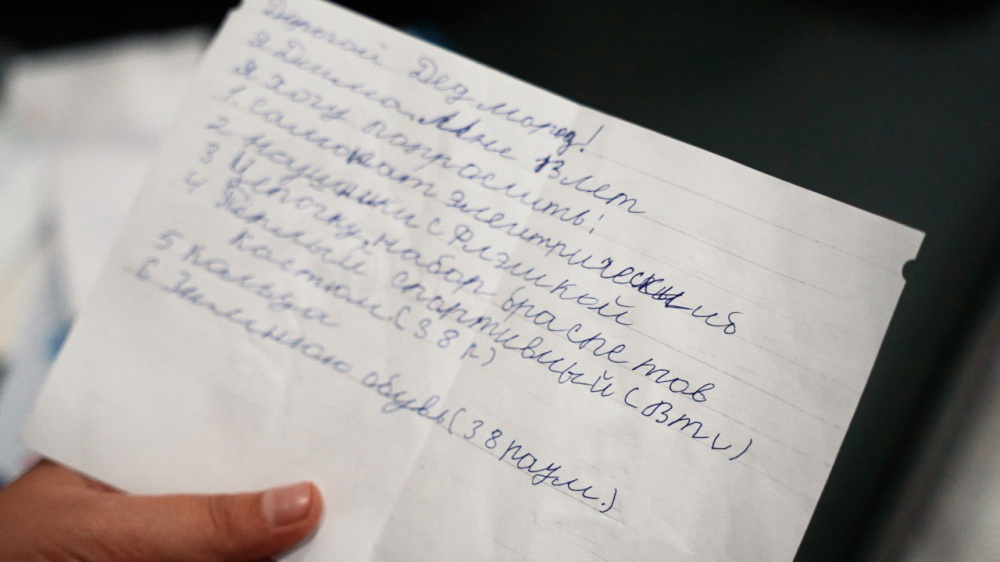 Дорогой Дед мороз!
Я Дима. Мне 13 лет
Я хочу попросить:
1. Самокат электрический
2 Наушники с Флэшкой
3 Цепочку, набор браслетов
4 Тёплый спортивный (
костюм (38 р.)
5 Кольца
6 Зимнюю обувь (38 разм.)